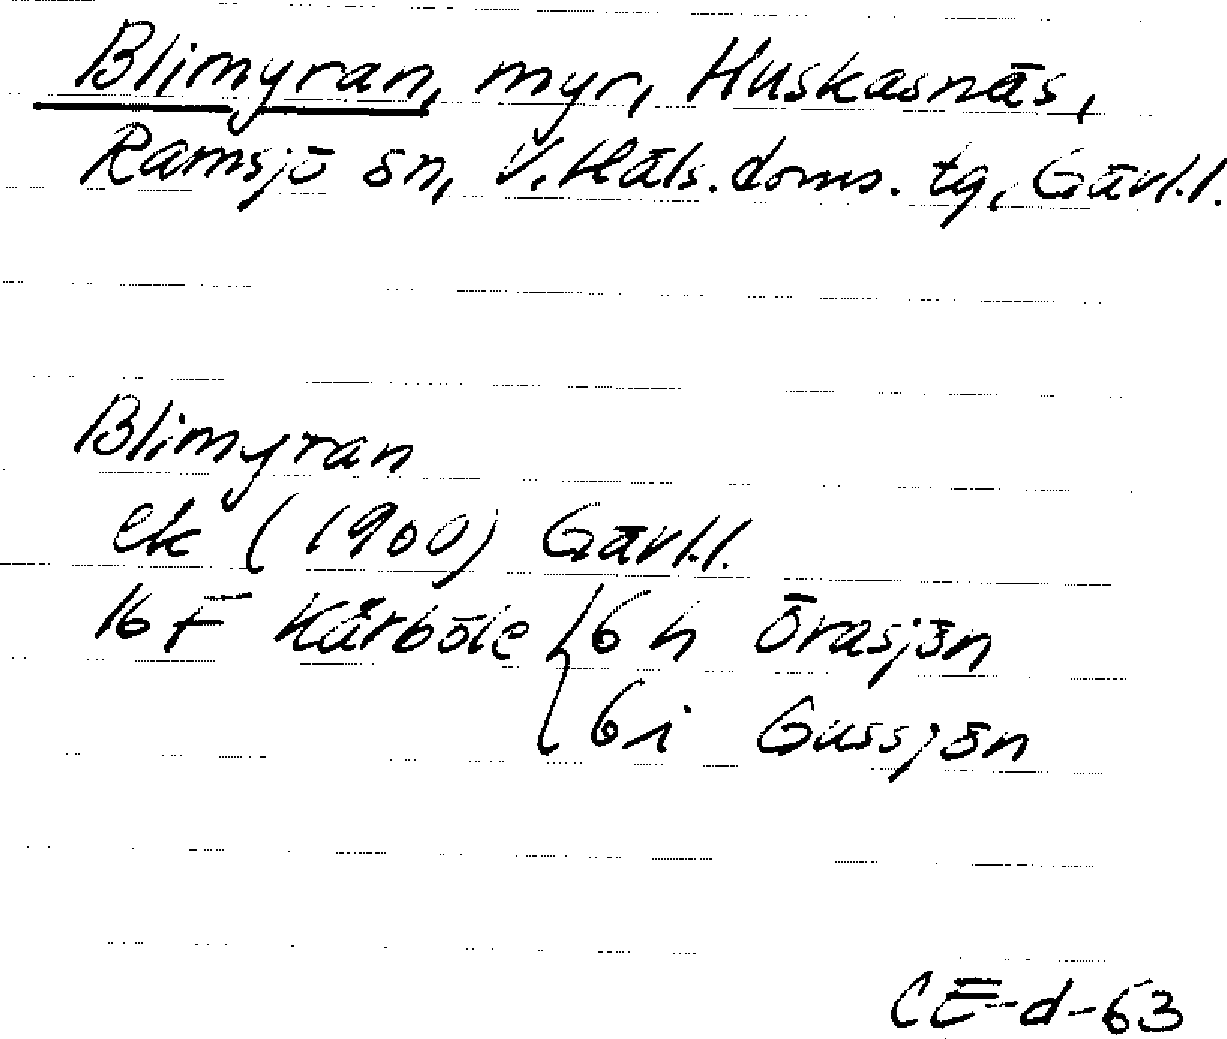 Blimyran, myr, Huskasnäs,
Ramsjö sn, V. Häls. doms. tg, Gävl.l.
Blimyran
ek (1900) Gävl.l.
16 F Kårböle { 6 h Örasjön
6 i Gussjön
CE-d-63